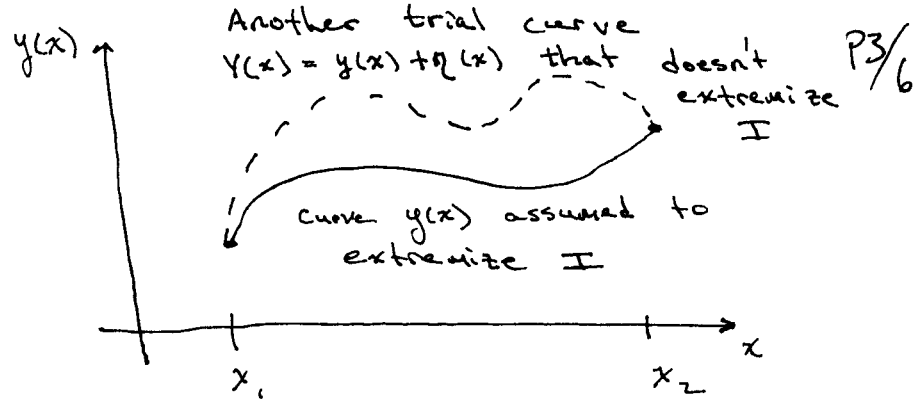 Another trial curve
y(x)
Y(x) = y(x) + η(x) that doesn't
extremize
I
P3/6
curve y(x) assumed to
extremize I
x
x₁
x₂